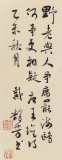 野老與人爭席罷海鷗
何事更相疑唐王維詩
乙未秋月戴